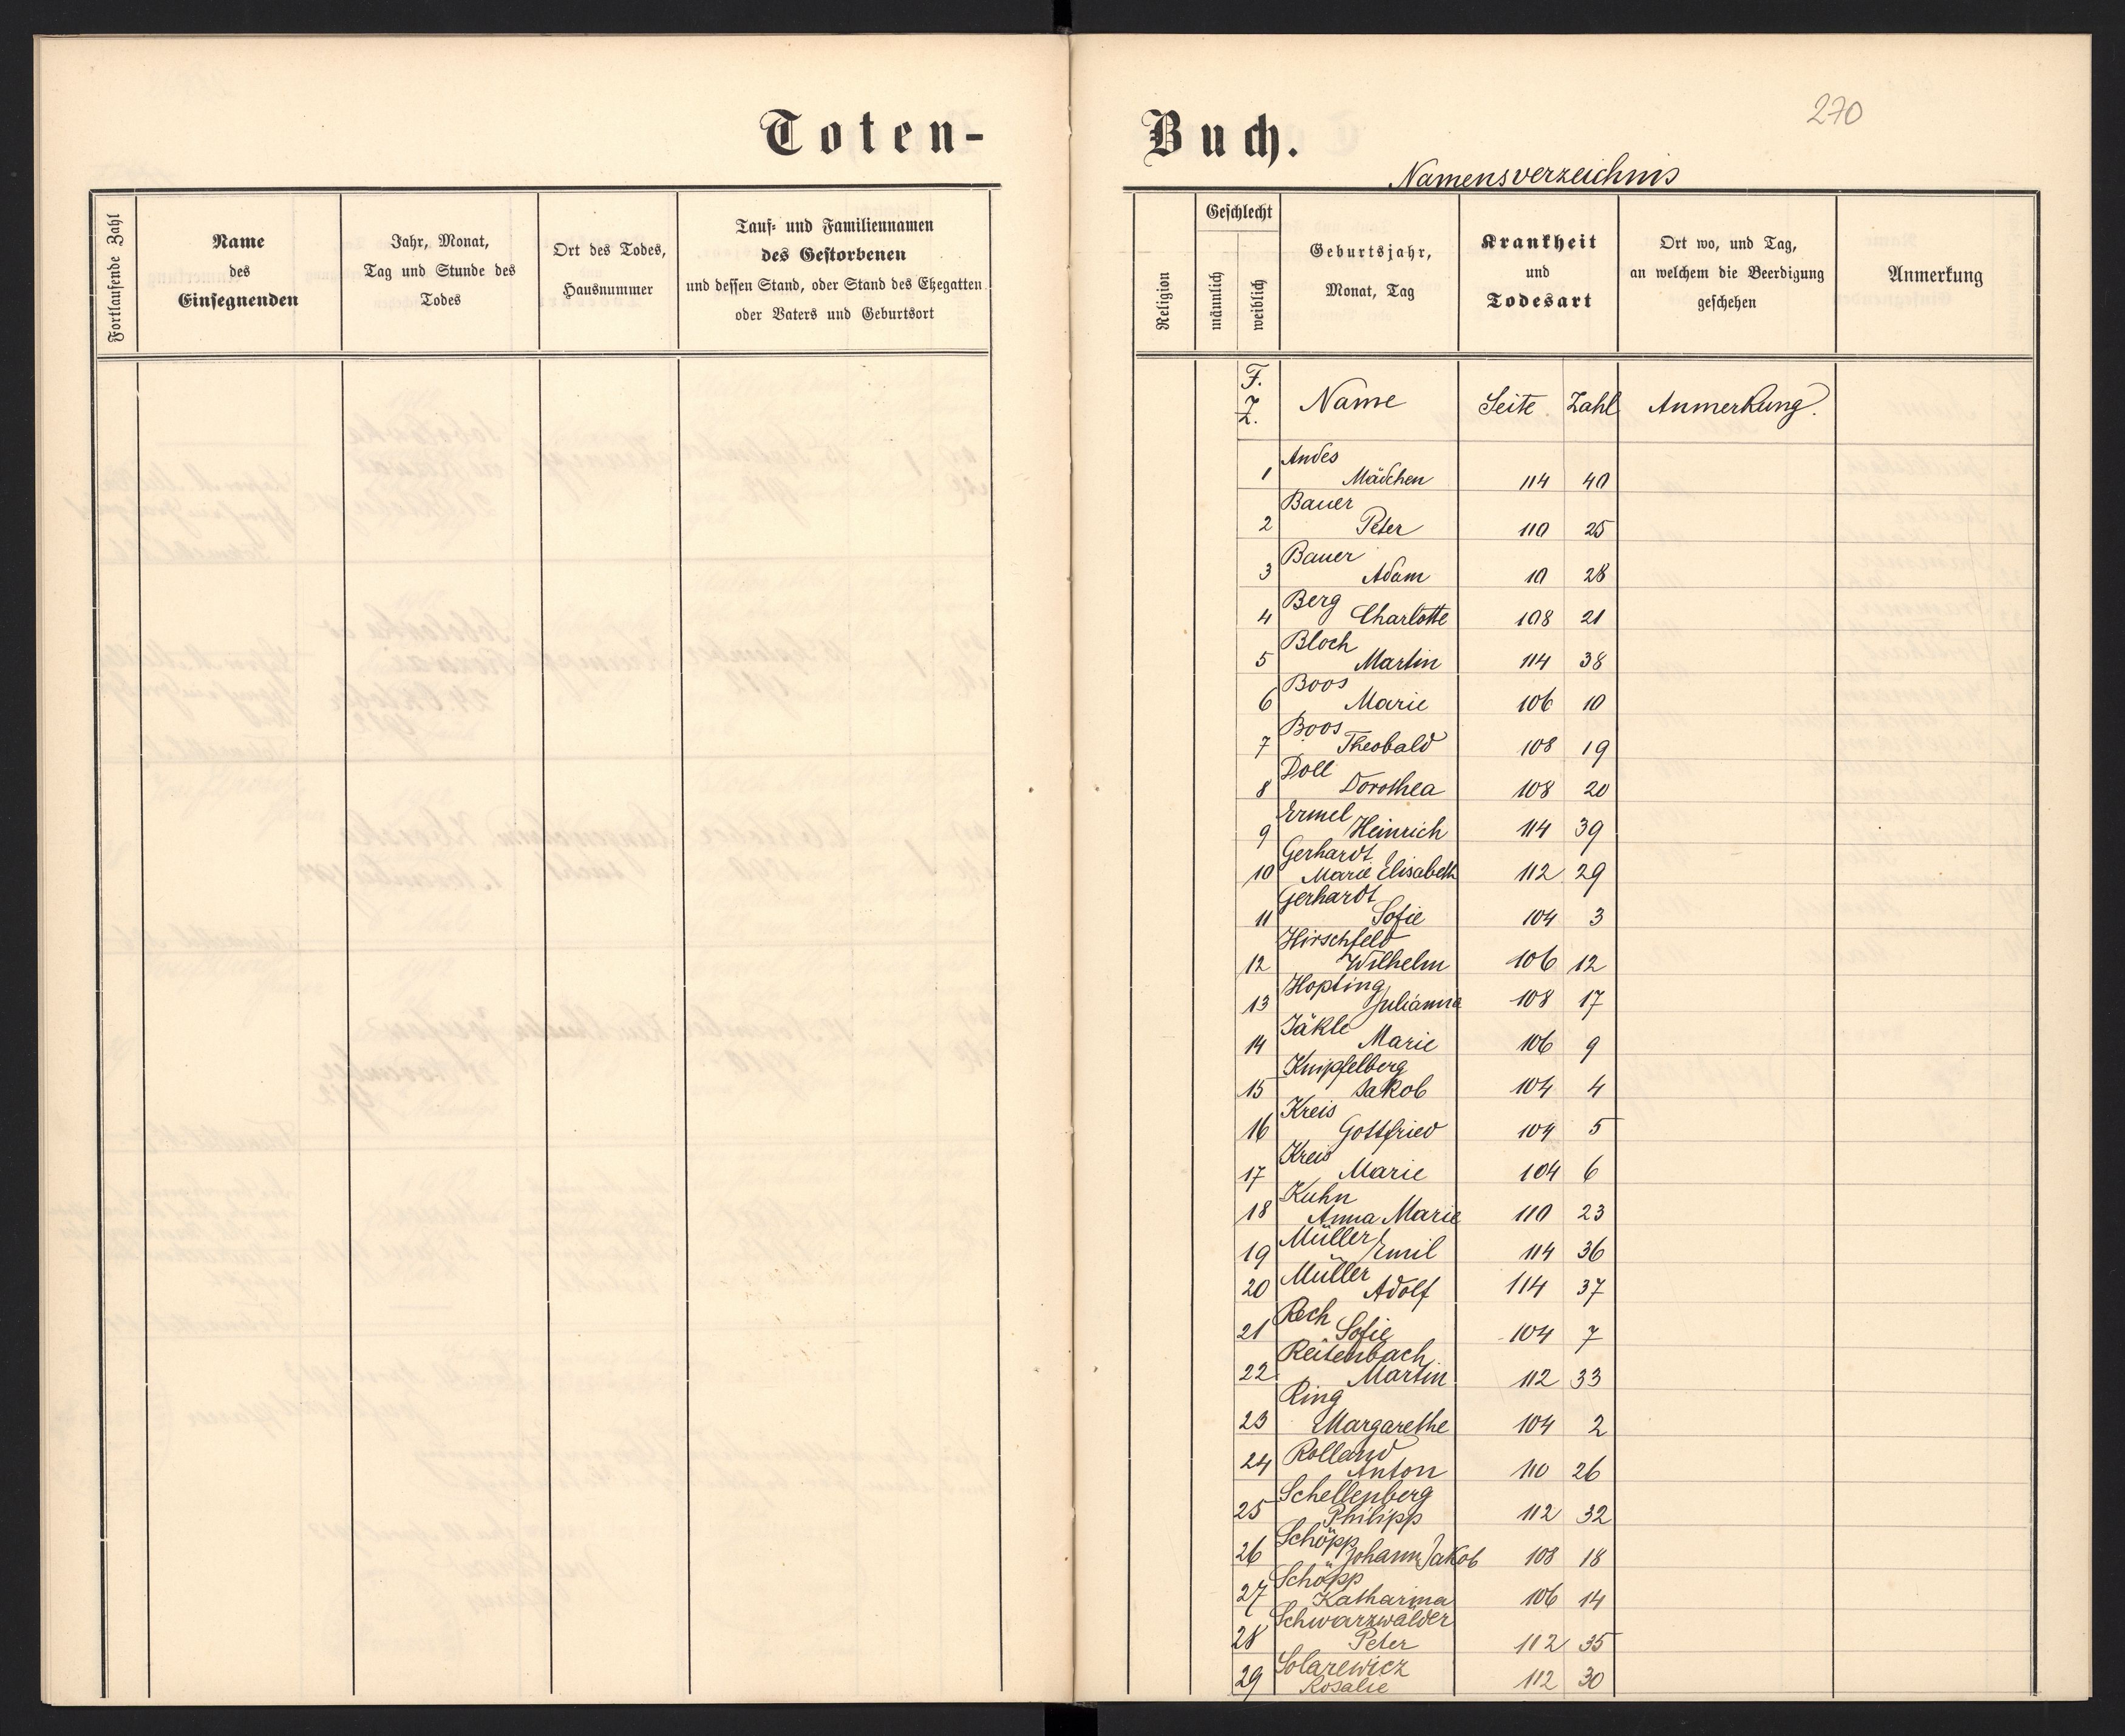 Toten-
Fortlaufende Zahl
Name
des
Einsegnenden
Jahr, Monat,
Tag und Stunde des
Todes
Ort des Todes,
Hausnummer
Tauf- und Familiennamen
des Gestorbenen
und dessen Stand, oder Stand des Ehegatten
oder Vaters und Geburtsort
270
Buch.
Namensverzeichnis
Religion
Geschlecht
männlich
weiblich
Geburtsjahr,
Monat, Tag
Krankheit
und
Todesart
Ort wo, und Tag,
an welchem die Beerdigung
geschehen
Anmerkung
F. Z. Name Seite Zahl Anmerkung.
Andes
1 Mädchen 114 40
Bauer
2 Peter 110 25
Bauer
3 Adam 10 28
Berg
4 Charlotte 108 21
Bloch
5 Martin 114 38
Boos
6 Marie 106 10
Boos
7 Theobald 108 19
Doll
8 Dorothea 108 20
Ermel
9 Heinrich 114 39
Gerhardt
10 Marie Elisabeth 112 29
Gerhardt
11 Sofie 104 3
Hirschfeld
12 Wilhelm 106 12
Hopting
13 Julianna 108 17
Jäkle
14 Marie 106 9
Knipfelberg
15 Jakob 104 4
Kreis
16 Gottfried 104 5
Kreis
17 Marie 104 6
Kuhn
18 Anna Marie 110 23
Müller
19 Emil 114 36
Müller
20 Adolf 114 37
Rech
21 Sofie 104 7
Reitenbach
22 Martin 112 33
Ring
23 Margarethe 104 2
Rolland
24 Anton 110 26
Schellenberg
25 Philipp 112 32
Schöpp
26 Johann Jakob 108 18
Schöpp
27 Katharina 106 14
Schwarzwälder
28 Peter 112 35
Solarewicz
29 Rosalie 112 30